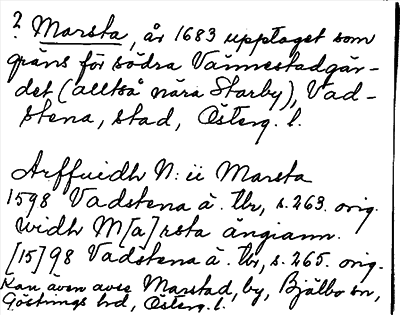 ? Marsta, år 1683 upptaget som
gräns för södra Vännestadgär-
det (alltså nära Starby), Vad-
stena, stad, Österg. l.
Arffuidh N: ii Marsta
1598 Vadstena ä. tb, s. 263. orig.
widh M[a]rsta ängiann.
[15]98 Vadstena ä. tb, s. 265. orig.
Kan även avse Marstad, by, Bjälbo sn,
Göstrings hd, Österg. l.